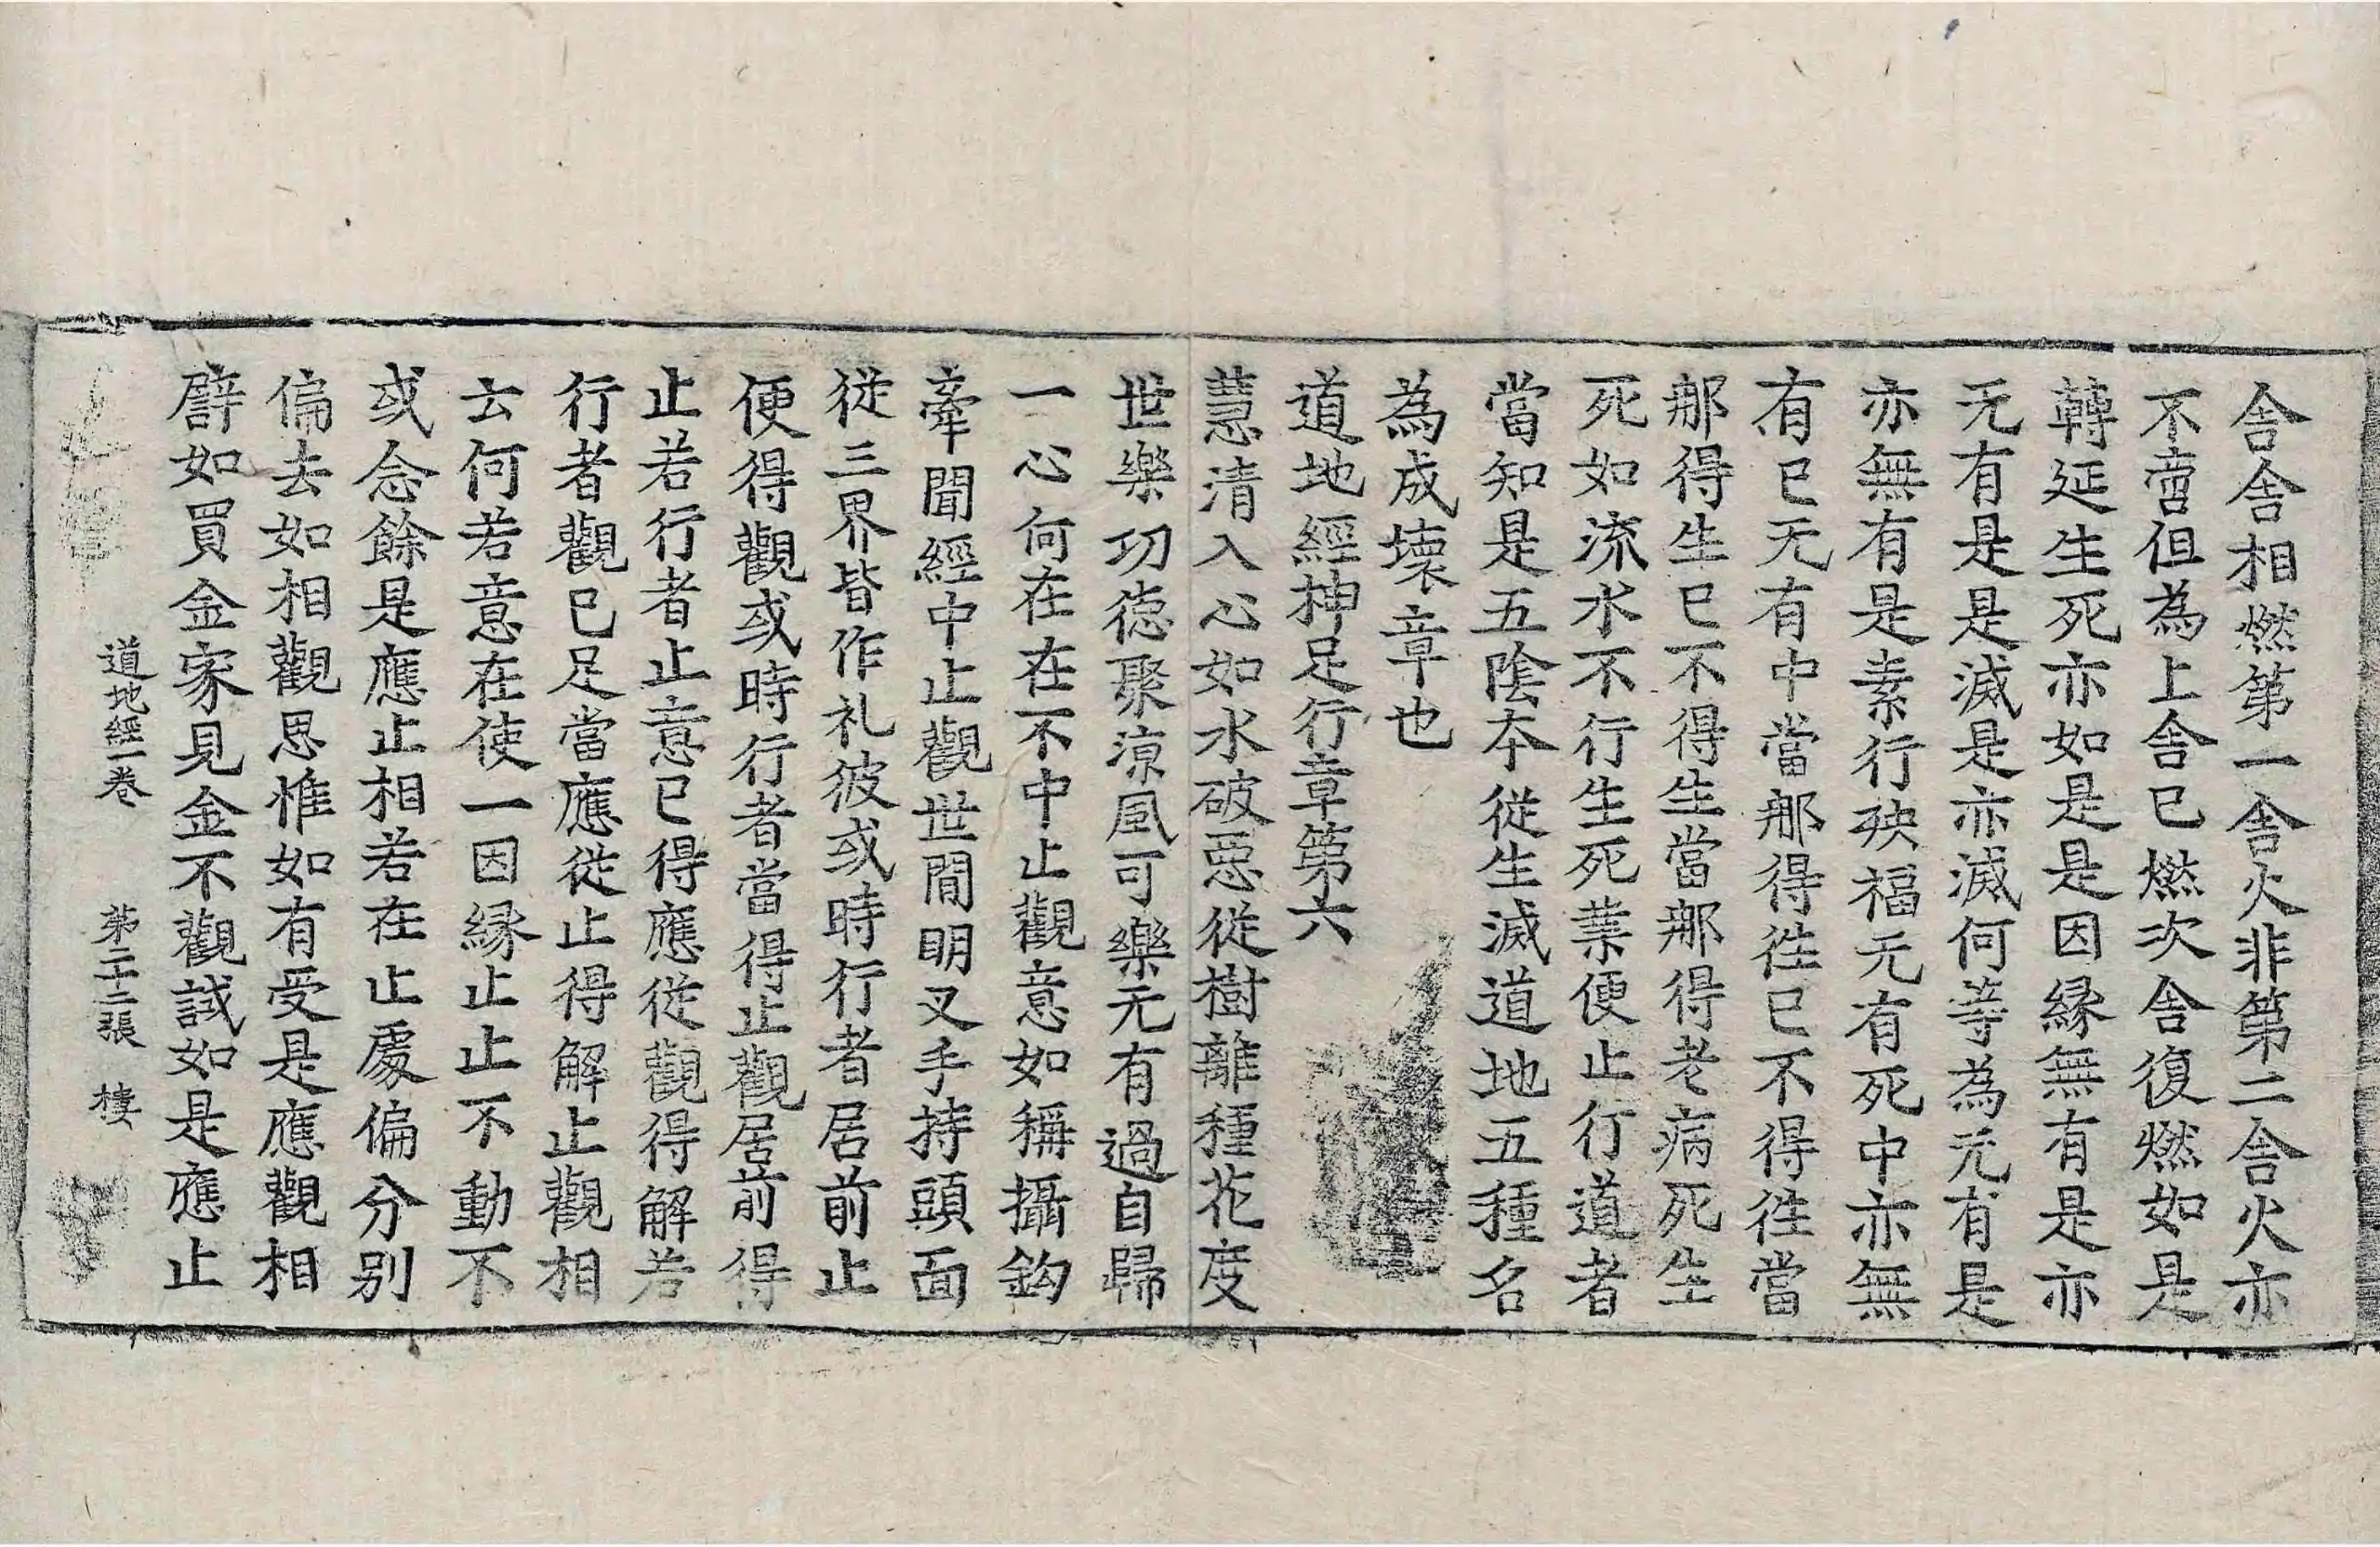 舎舎相燃第一舎火非第二舎火亦
不啻但為上舎已燃次舎復燃如是
轉延生死亦如是是因縁無有是亦
无有是是滅是亦滅何等為无有是
亦無有是素行殃福无有死中亦無
有已无有中當那得徃已不得徃當
那得生已不得生當那得老病死生
死如流水不行生死業便止行道者
當知是五陰夲從生滅道地五種名
為成壞章也
道地經神足行章第六
慧清入心如水破惡從樹離種花度
世樂功德聚涼風可樂无有過自歸
一心何在在不中止觀意如稱攝鈎
牽聞經中止觀世間明叉手持頭面
從三界皆作礼彼或時行者居前止
便得觀或時行者當得止觀居前得
止若行者止意已得應從觀得解若
行者觀已足當應從止得解止觀相
云何若意在使一因縁止止不動不
或念餘是應止相若在止處偏分別
偏去如相觀思惟如有受是應觀相
譬如買金家見金不觀誠如是應止
道地經一卷　第二十二張　樓